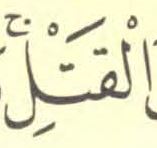 الْقَتْلِ ۚ